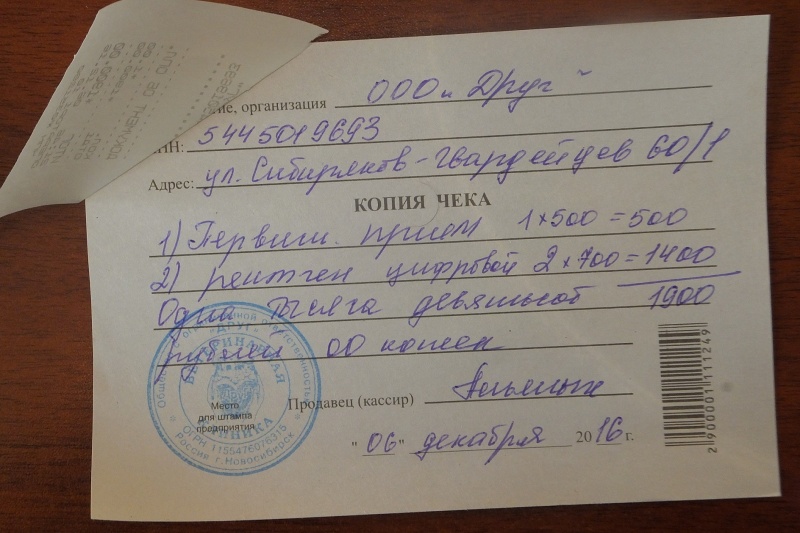 ие, организация ООО "Друг"
НН: 5445019693
Адрес: ул. Сибиряков-Гвардейцев 60/1
КОПИЯ ЧЕКА
1) Первичн. прием 1×500=500
2) рентген цифровой 2×700=1400
Один тысяча девятьсот 1900
рублей 00 копеек
Продавец (кассир)
"06" декабря 2016 г.
Место
для штампа
предприятия
Общество с ограниченной ответственностью
"ДРУГ"
ВЕТЕРИНАРНАЯ
КЛИНИКА
ОГРН 1155476076315
Россия г. Новосибирск
2900001111249